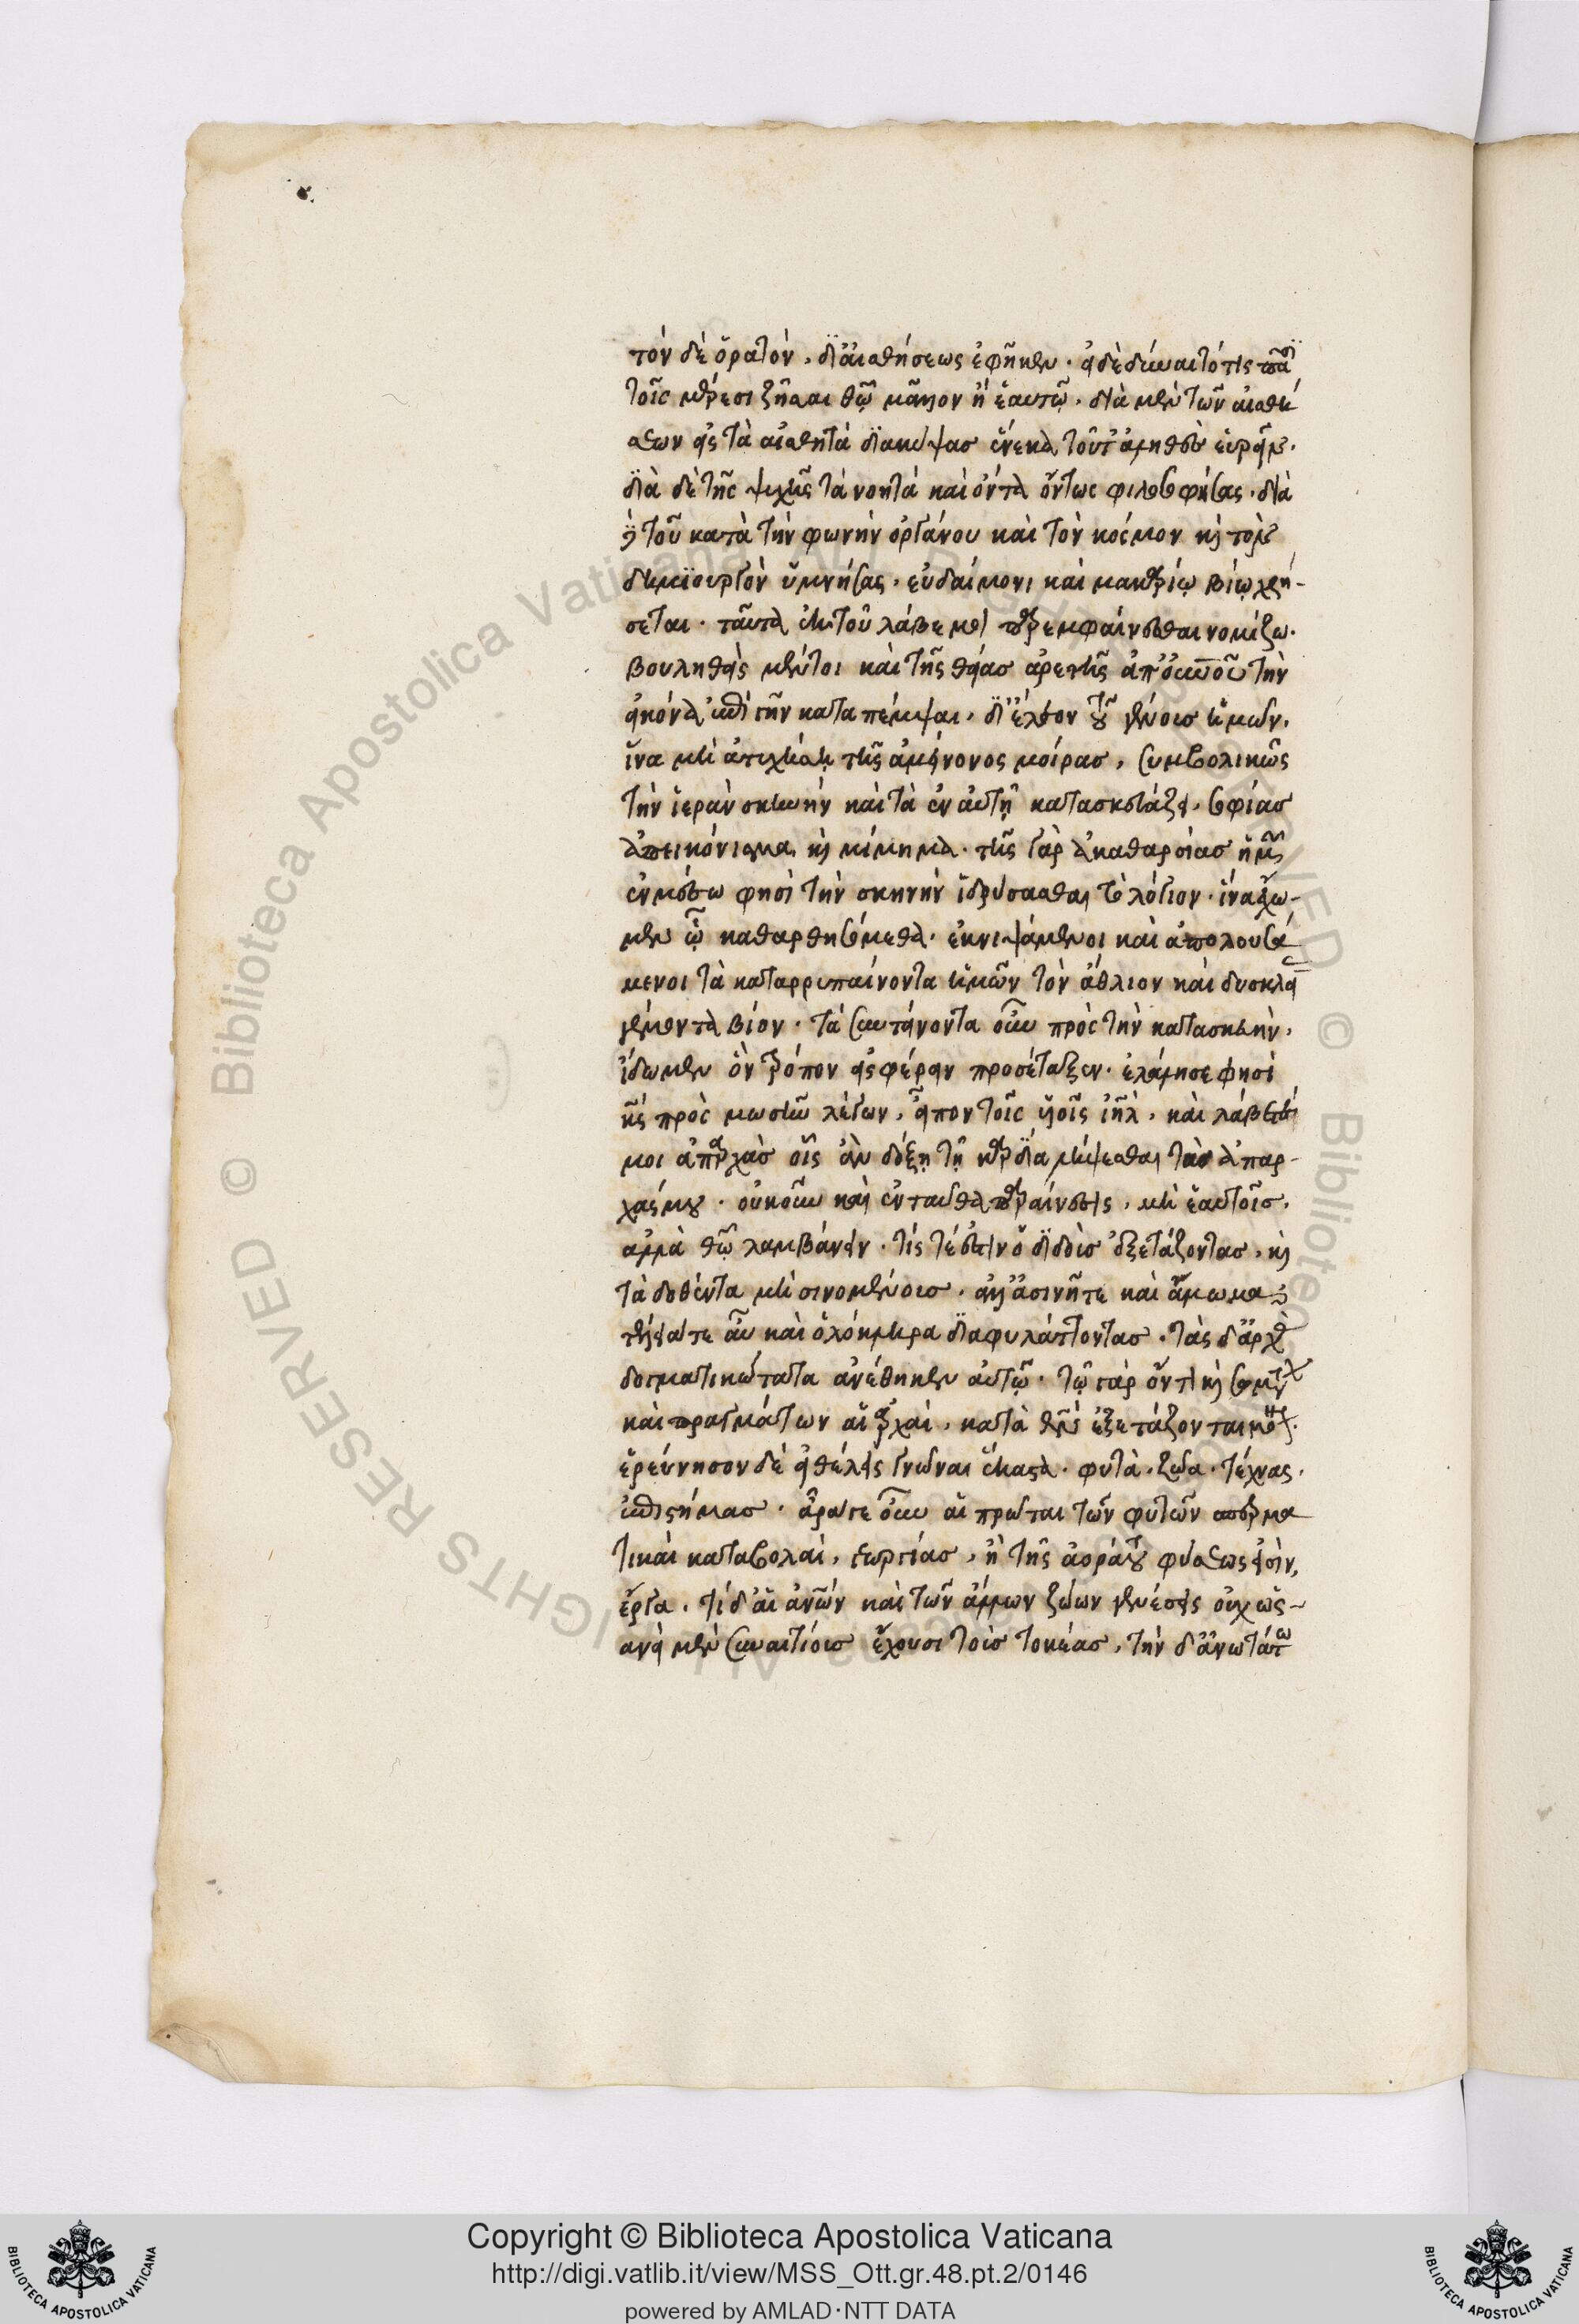 τὸν δὲ ὁρατὸν, δι᾽ αἰσθήσεως ἐφῆκεν. εἰ δὲ δύναιτό τις πᾶσι
τοῖς μέρεσι ζῆσαι θεῷ μᾶλλον ἢ ἑαυτῷ, διὰ μὲν τῶν αἰσθή
σεων εἰς τὰ αἰσθητὰ διακύψας ἕνεκα τοῦ τἀληθὲς εὑρεῖν.
διὰ δὲ τῆς ψυχῆς τὰ νοητὰ καὶ ὄντα ὄντως φιλοσοφήσας. διὰ
δὲ τοῦ κατὰ τὴν φωνὴν ὀργάνου καὶ τὸν κόσμον καὶ τὸν
δημιουργὸν ὑμνήσας, εὐδαίμονι καὶ μακαρίῳ βίῳ χρή-
σεται. ταῦτα ἐκ τοῦ λάβετέ μοι παρεμφαίνεσθαι νομίζω.
βουληθεὶς μέντοι καὶ τῆς θείας ἀρετῆς ἀπ᾽ οὐρανοῦ τὴν
εἰκόνα ἐπὶ γῆν καταπέμψαι, δι᾽ ἔλεον τοῦ γένους ἡμῶν,
ἵνα μὴ ἀτυχήσῃ τῆς ἀμείνονος μοίρας, συμβολικῶς
τὴν ἱερὰν σκηνὴν καὶ τὰ ἐν αὐτῇ κατασκευάζει, σοφίας
ἀπεικόνισμα καὶ μίμημα. τῆς γὰρ ἀκαθαρσίας ἡμῶν
ἐν μέσῳ φησὶ τὴν σκηνὴν ἱδρύσασθαι τὸ λόγιον. ἵνα ἔχω-
μεν ᾧ καθαρθησόμεθα. ἐκνιψάμενοι καὶ ἀπολουσά
μενοι τὰ καταρρυπαίνοντα ἡμῶν τὸν ἄθλιον καὶ δυσκλείας
γέμοντα βίον. τὰ συντείνοντα οὖν πρὸς τὴν κατασκευὴν,
ἴδωμεν ὃν τρόπον εἰσφέρειν προσέταξεν. ἐλάλησε φησὶ
κς πρὸς μωσῆν λέγων, εἶπον τοῖς υἱοῖς ιηλ, καὶ λάβετέ
μοι ἀπαρχὰς οἷς ἂν δόξῃ τῇ καρδίᾳ λήψεσθαι τὰς ἀπαρ-
χάς μου. οὐκοῦν καὶ ἐνταῦθα παραίνεσις, μὴ ἑαυτοῖς,
ἀλλὰ θεῷ λαμβάνειν. τίς τέ ἐστιν ὁ διδοὺς ἐξετάζοντας, καὶ
τὰ δοθέντα μὴ σινομένους. ἀλλ᾽ ἀσινῆ τε καὶ ἄμωμα
τέλειά τε αὖ καὶ ὁλόκληρα διαφυλάττοντας. τὰς δ᾽ ἀρχὰς
δογματικώτατα ἀνέθηκεν αὐτῷ. τῷ γὰρ ὄντι καὶ σωμάτων
καὶ πραγμάτων αἱ ἀρχαὶ, κατὰ θεὸν ἐξετάζονται μόνον.
ἐρεύνησον δὲ εἰ θέλεις γνῶναι ἕκαστα. φυτὰ. ζῶα. τέχνας.
ἐπιστήμας. ἆρά γε οὖν αἱ πρῶται τῶν φυτῶν σπερμα
τικαὶ καταβολαὶ, γεωργίας, ἢ τῆς ἀοράτου φύσεώς εἰσιν,
ἔργα. τί δ᾽ αἱ ἀνων καὶ τῶν ἄλλων ζώων γενέσεις οὐχ ὡς-
ανεὶ μὲν συναιτίους ἔχουσι τοὺς τοκέας, τὴν δ᾽ ἀνωτάτω
Copyright © Biblioteca Apostolica Vaticana
http://digi.vatlib.it/view/MSS_Ott.gr.48.pt.2/0146
powered by AMLAD·NTT DATA